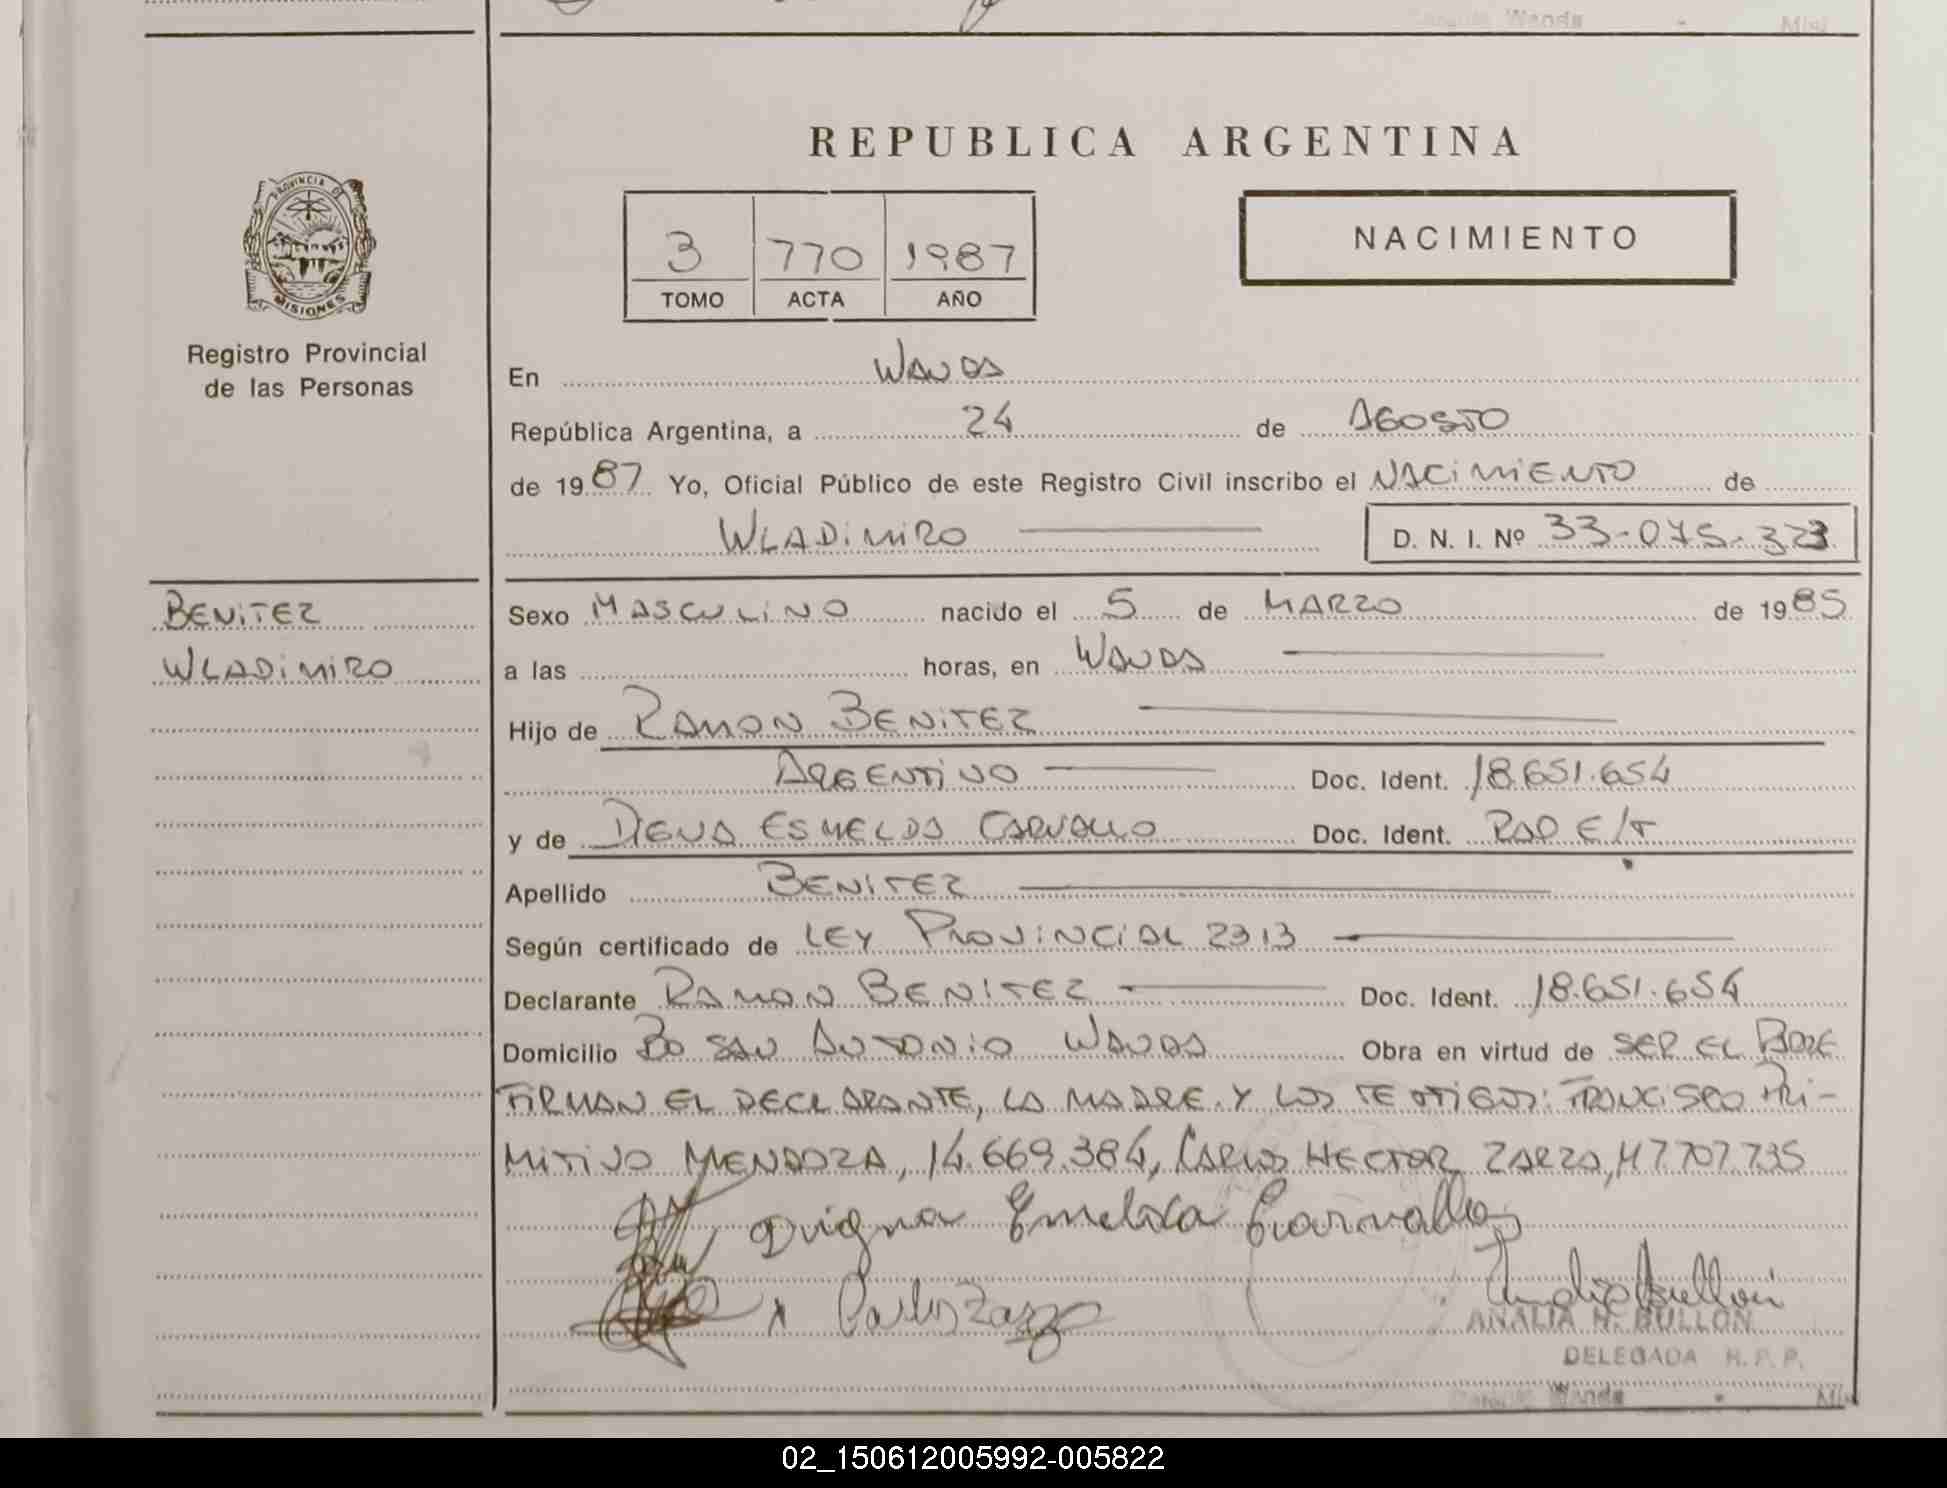 Wanda - Misi
REPUBLICA ARGENTINA
PROVINCIA DE
MISIONES
Registro Provincial
de las Personas
3 770 1987
TOMO ACTA AÑO
NACIMIENTO
En WANDA
República Argentina, a 24 de AGOSTO
de 1987 Yo, Oficial Público de este Registro Civil inscribo el NACIMIENTO de
WLADIMIRO D. N. I. Nº 33-075-323
BENITEZ
WLADIMIRO
Sexo MASCULINO nacido el 5 de MARZO de 1985
a las horas, en WANDA
Hijo de RAMON BENITEZ
ARGENTINO Doc. Ident. 18.651.654
y de DIGNA ESMELDA CARVALLO Doc. Ident. RAP E/T
Apellido BENITEZ
Según certificado de LEY PROVINCIAL 2313
Declarante RAMON BENITEZ Doc. Ident. 18.651.654
Domicilio Bo SAN ANTONIO WANDA Obra en virtud de SER EL PADRE
FIRMAN EL DECLARANTE, LA MADRE Y LOS TESTIGOS: FRANCISCO PRI-
MITIVO MENDOZA, 14.669.384, CARLOS HECTOR ZARZA, M7707.735
Duigna Emelda Carvallo
x Carlos Zarza
Analia Bullon
ANALIA H. BULLON
DELEGADA R. P. P.
Wanda - Mis
02_150612005992-005822